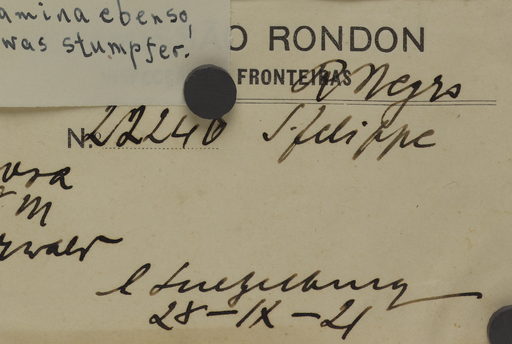 amina ebenso,
was stumpfer.
O RONDON
FRONTEIRAS
R Negro
N. 22240 S. felippe
M
rwald
Luetzelburg
28-IX-21